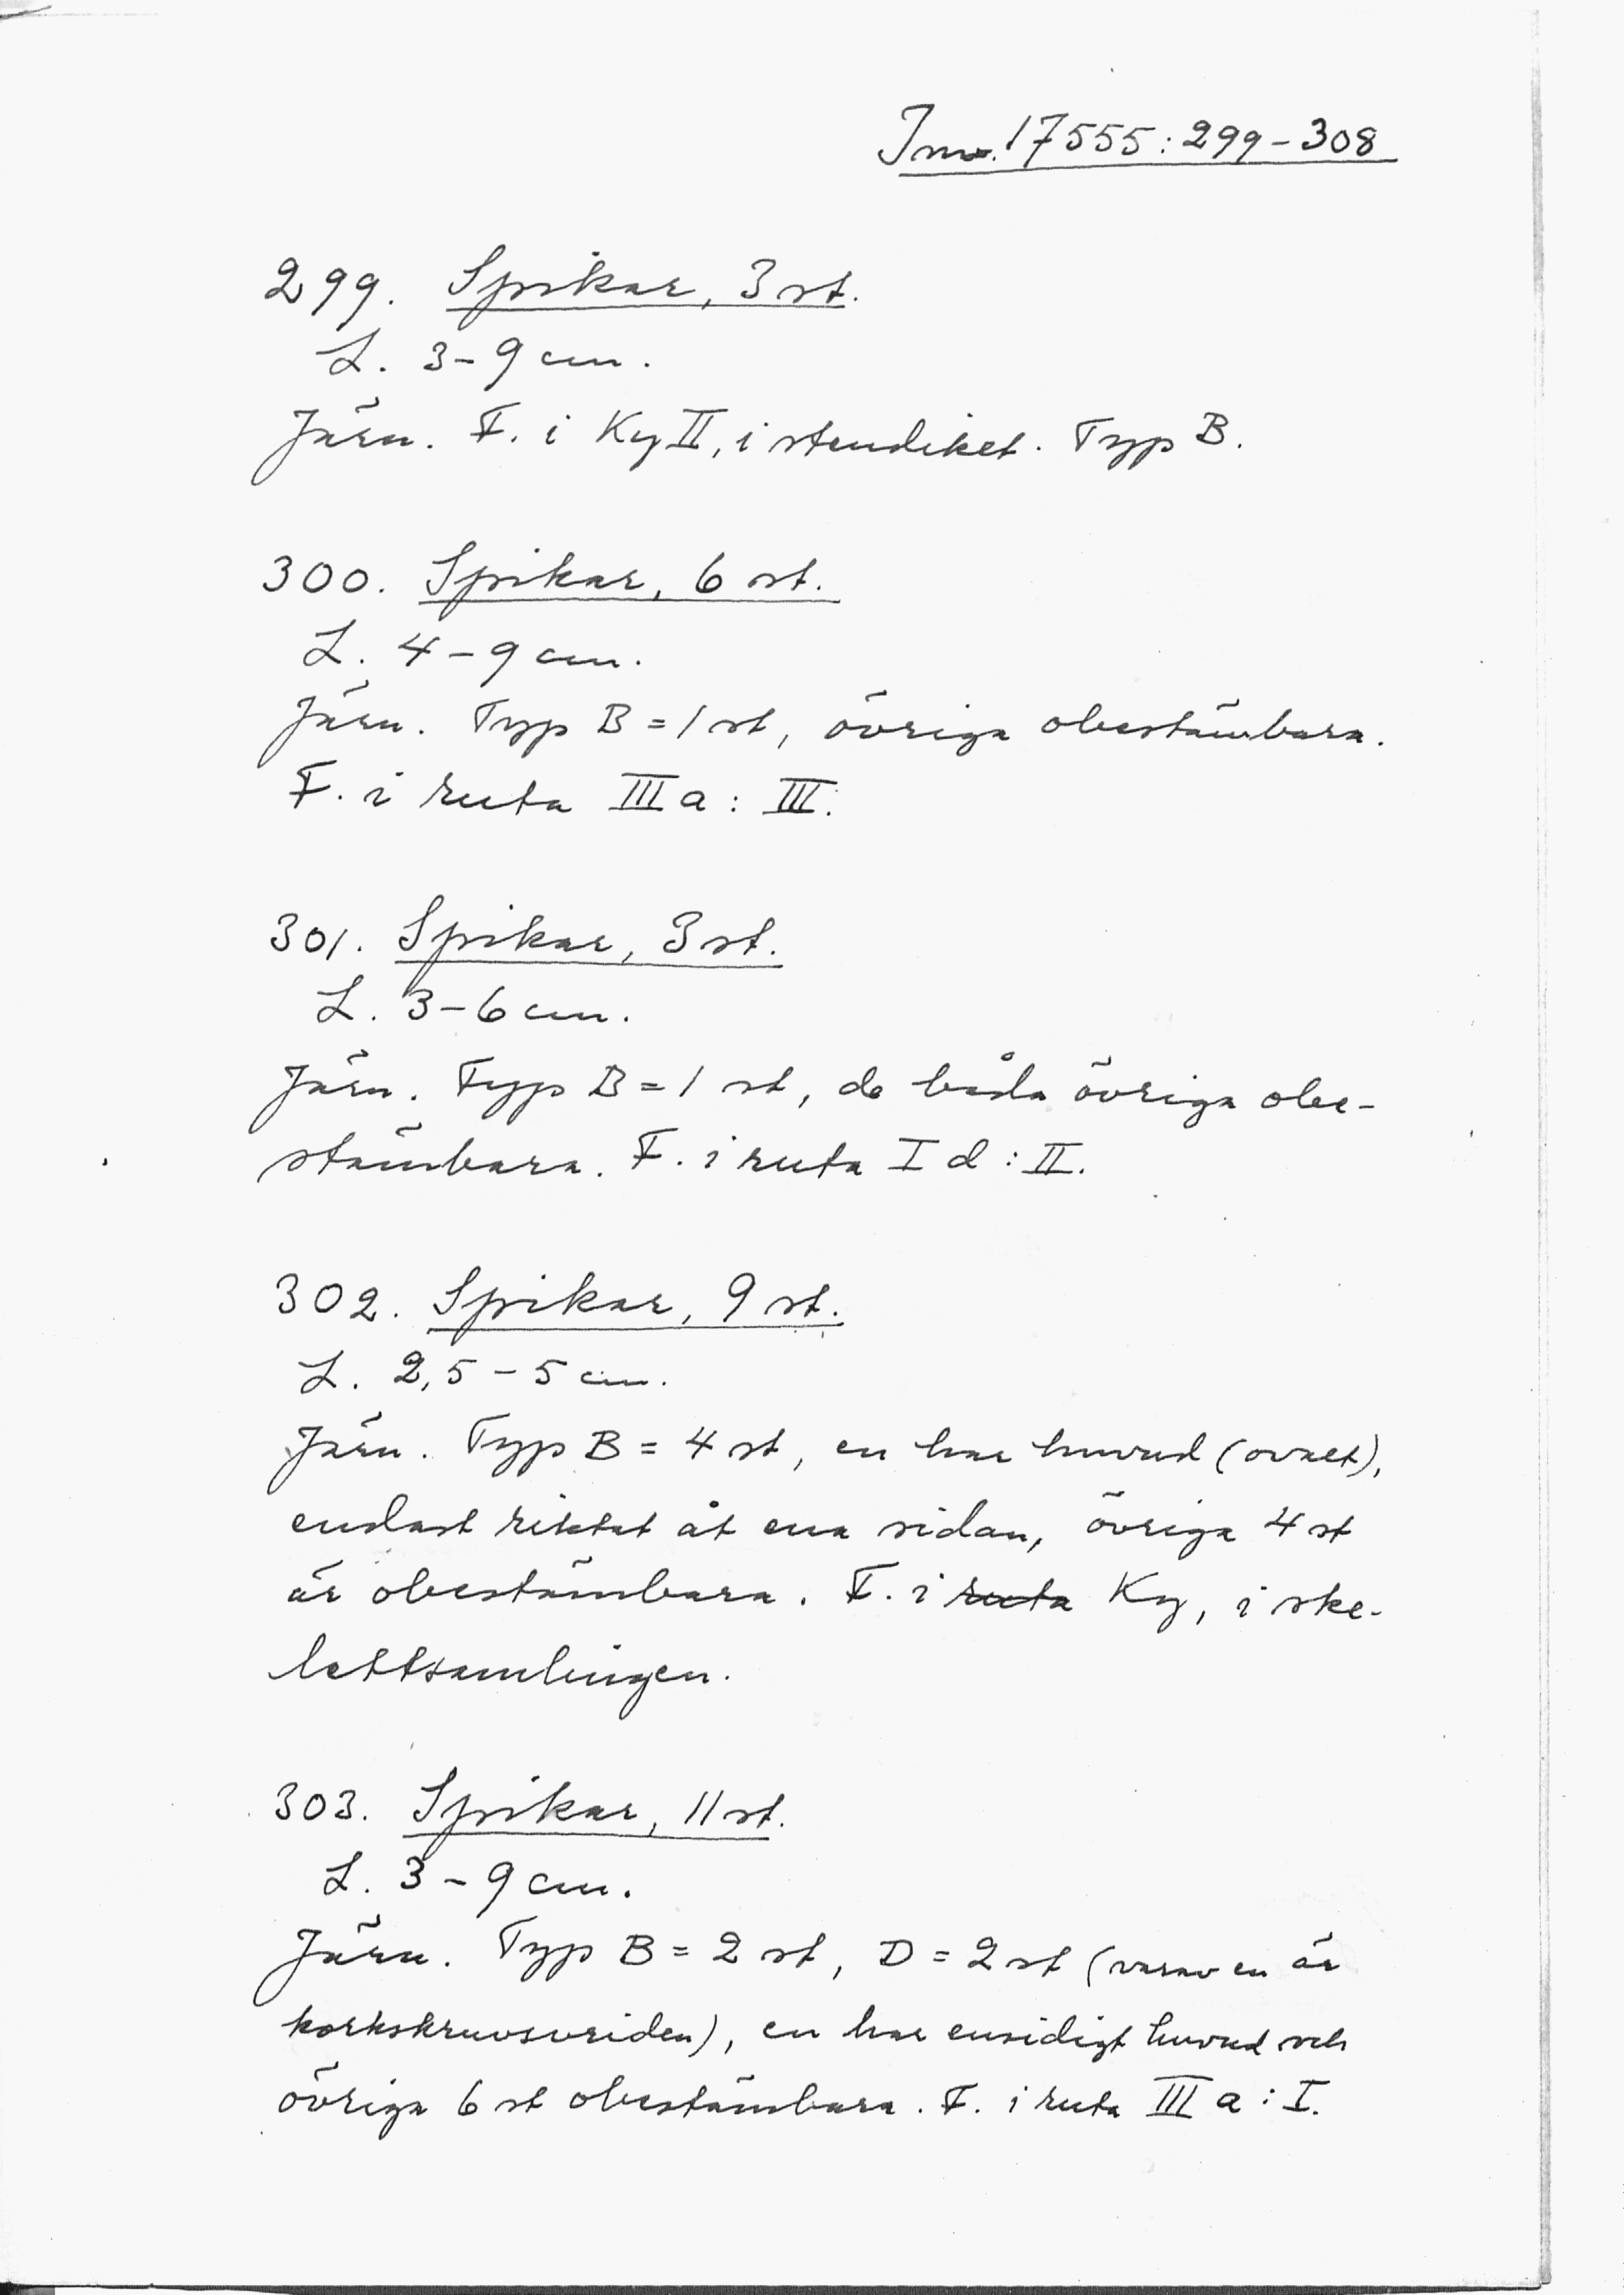 Jm. 17555:299-308
299. Spikar, 3 st.
L. 3-9 cm.
Järn. F. i Ky II, i stendiket. Typ B.
300. Spikar, 6 st.
L. 4-9 cm.
Järn. Typ B = 1 st, övriga obestämbara.
F. i ruta III a : III.
301. Spikar, 3 st.
L. 3-6 cm.
Järn. Typ B = 1 st, de båda övriga obe-
stämbara. F. i ruta I d : II.
302. Spikar, 9 st.
L. 2,5 - 5 cm.
Järn. Typ B = 4 st, en har huvud (ovalt),
endast riktat åt ena sidan, övriga 4 st
är obestämbara. F. i ruta Ky, i ske-
lettsamlingen.
303. Spikar, 11 st.
L. 3-9 cm.
Järn. Typ B = 2 st, D = 2 st (varav en är
korkskruvsvriden), en har ensidigt huvud och
övriga 6 st obestämbara. F. i ruta III a : I.